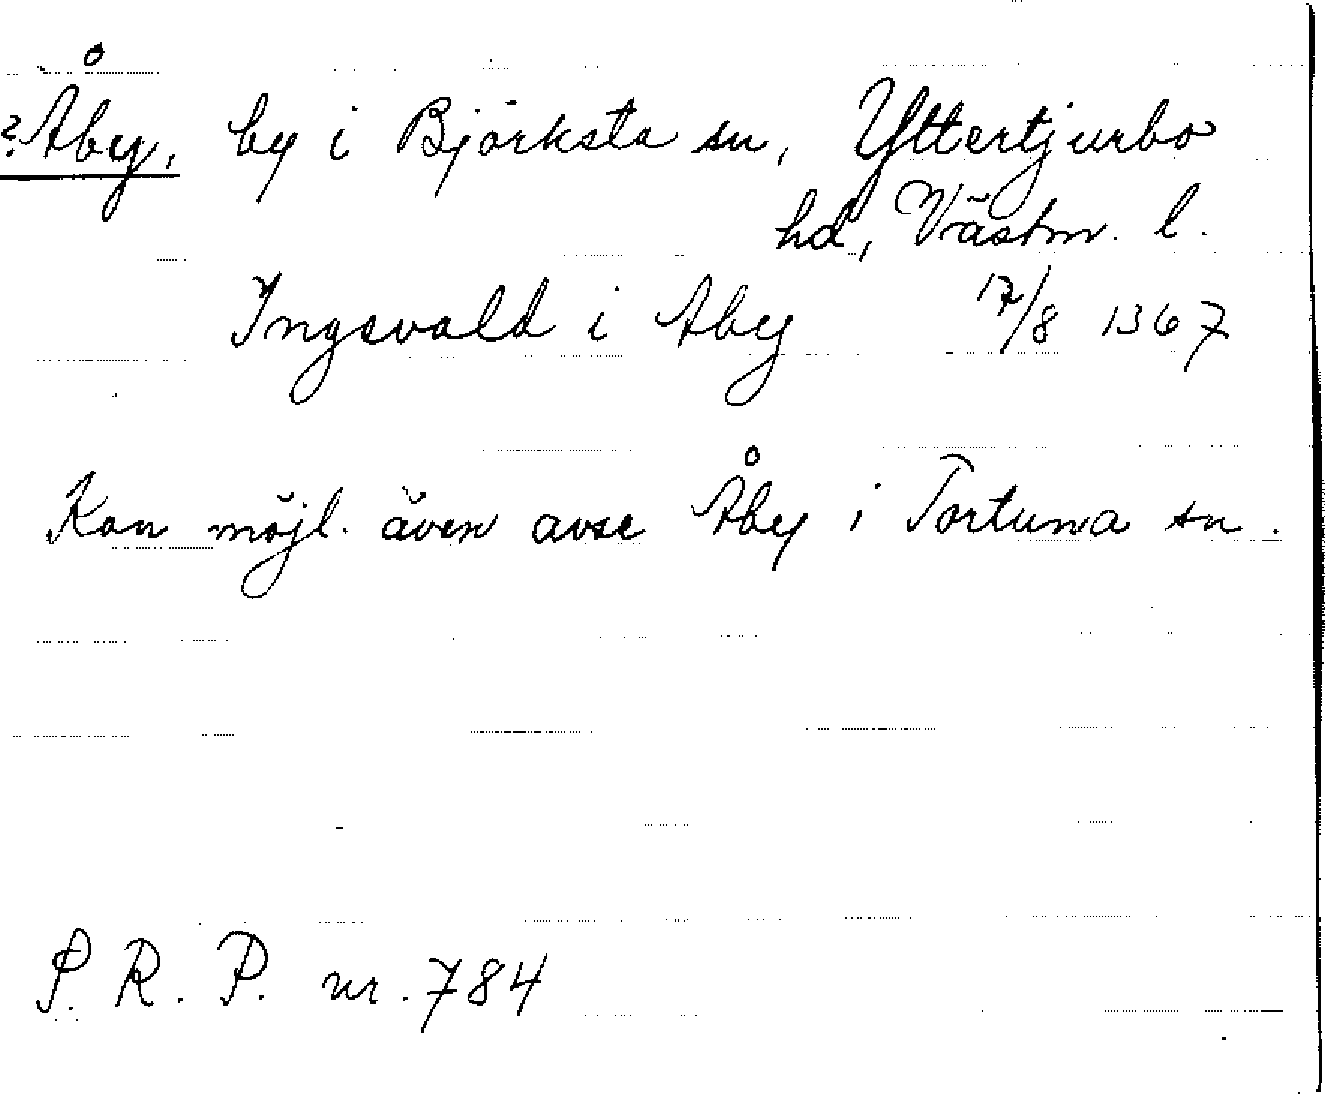 ? Åby, by i Björksta sn, Yttertjurbo
hd, Västm. l.
Ingevald i Aby 17/8 1367
Kan möjl. även avse Åby i Tortuna sn.
P. R. P. nr. 784